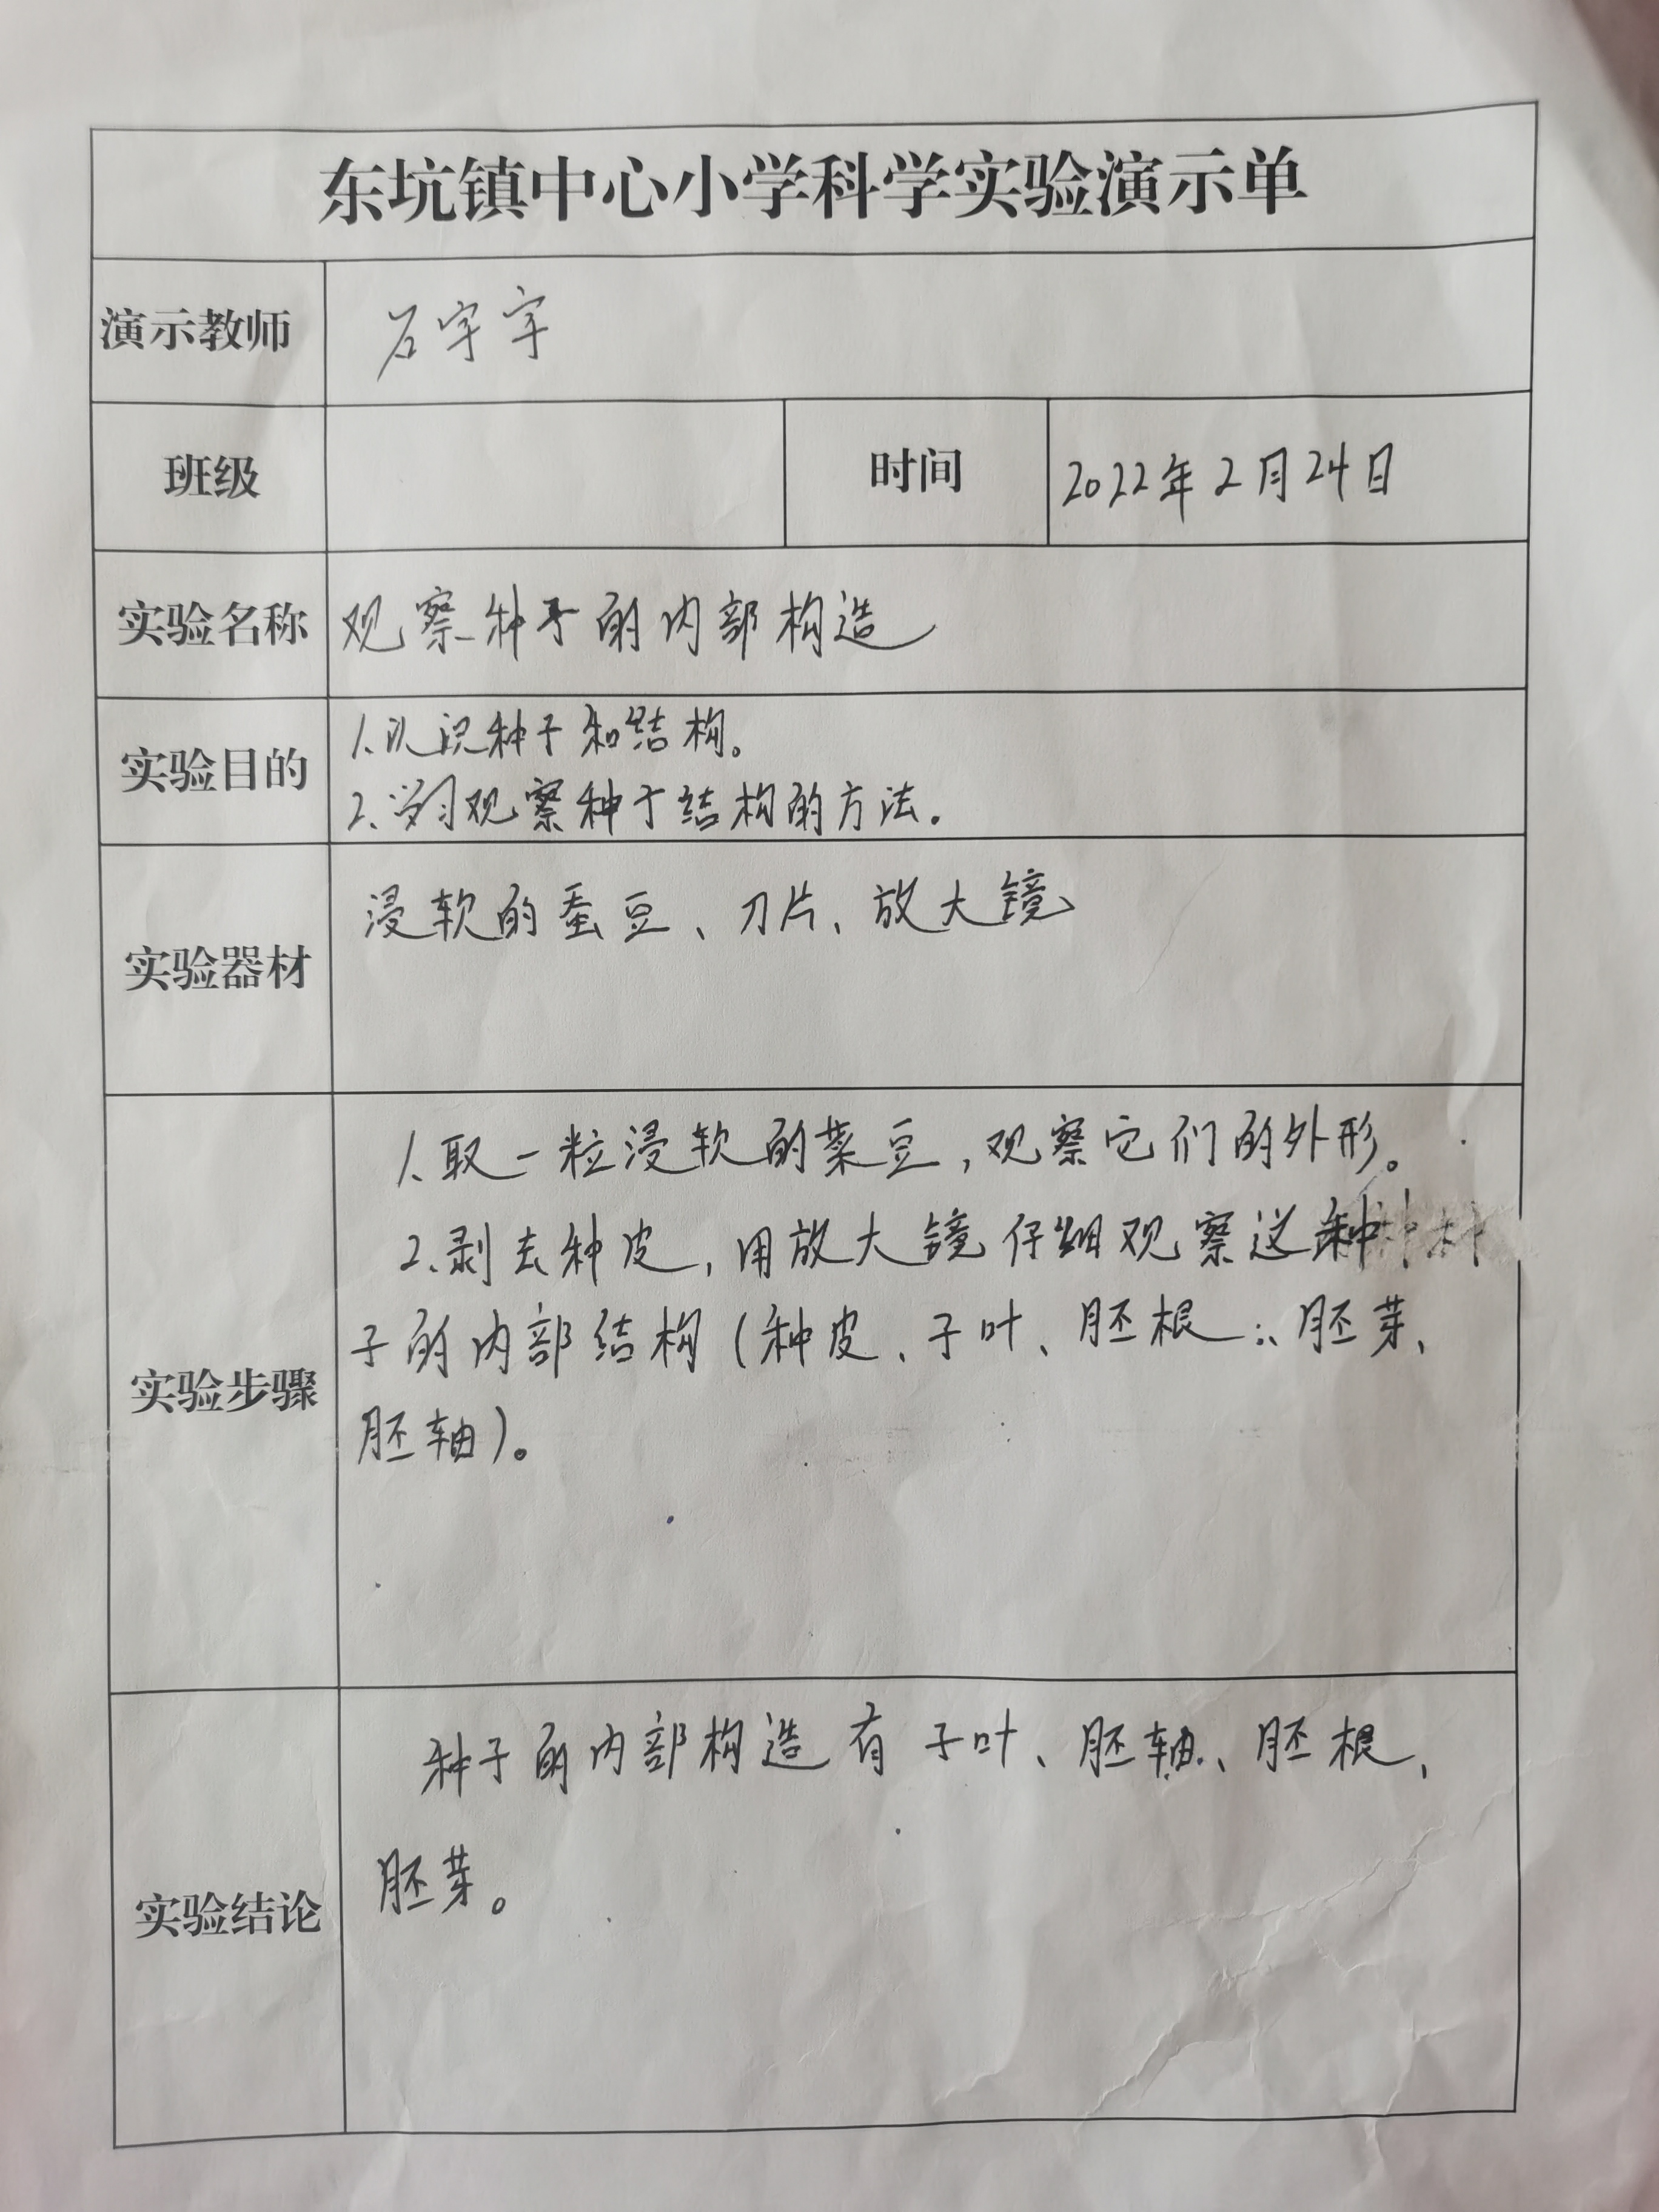 东坑镇中心小学科学实验演示单
演示教师 石宇宇
班级 时间 2022年2月24日
实验名称 观察种子的内部构造
实验目的
1.认识种子和结构。
2.学习观察种子结构的方法.
实验器材
浸软的蚕豆、刀片、放大镜
实验步骤
1.取一粒浸软的菜豆,观察它们的外形。
2.剥去种皮,用放大镜仔细观察这种
子的内部结构(种皮、子叶、胚根、胚芽、
胚轴)。
实验结论
种子的内部构造有子叶、胚轴、胚根、
胚芽。